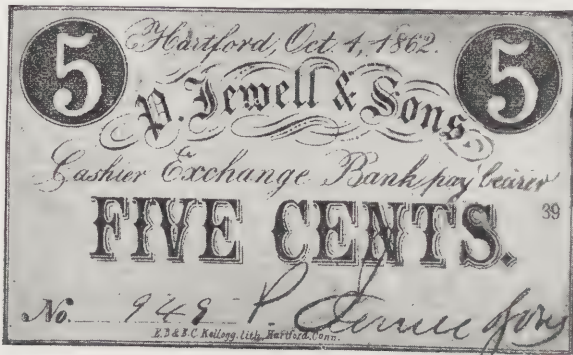 5 Hartford, Oct. 1, 1862. 5
P. Jewell & Sons
Cashier Exchange Bank pay bearer
FIVE CENTS.
39
No. 949 P. Jewell & Sons
E.B & E.C. Kellogg, lith, Hartford, Conn.